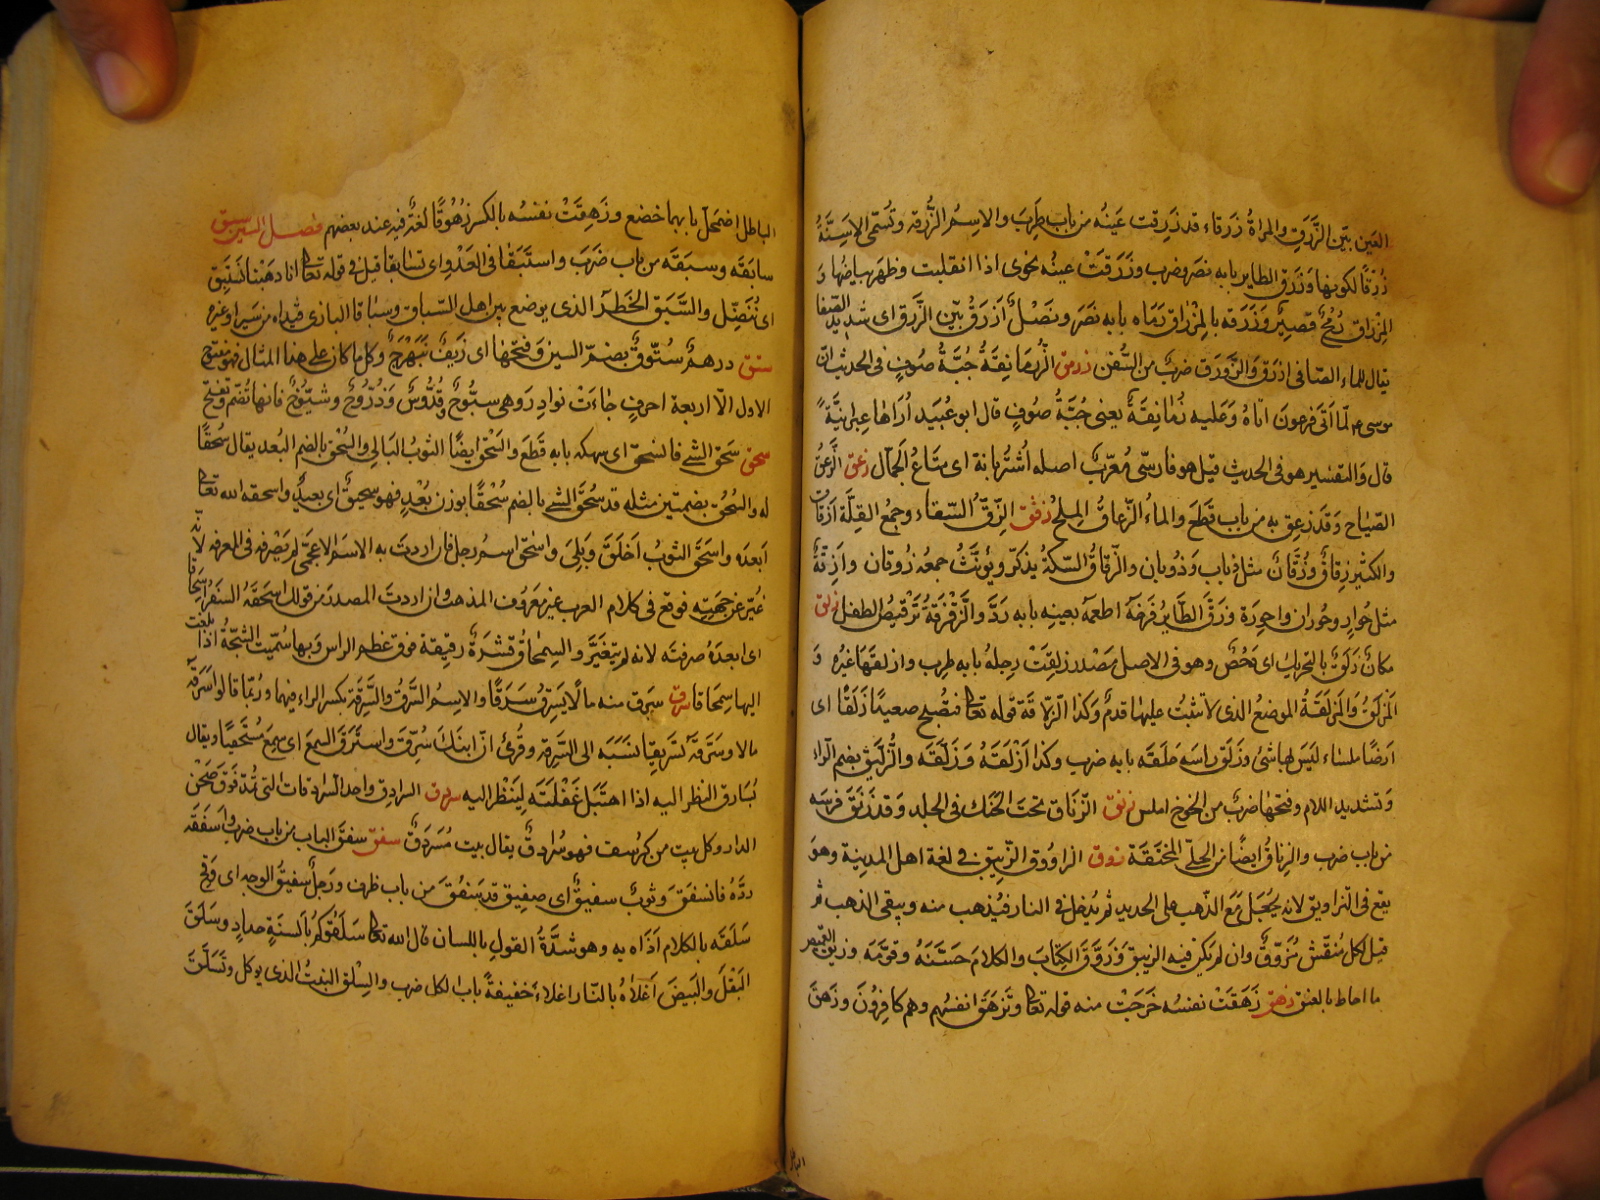 العين بيّن الزَّرَق والمراةُ زَرقاء قد زرقت عَينُه من باب طَرِبَ والاسمُ الزُّرقه وتُسَمّى الاَسِنَّةُ
زُرقًا لكونها وَزَرَق الطاير بابه نصَر وضرب وزَرَقَتْ عينُه نحوى اذا انقلبت وظهر بياضُها وَ
المِزراق رُمحٌ قَصيرٌ وَزَرَقه بالمِزراق رَماه بابه نصَرَ ونَصْلٌ اَزرَقُ بيّن الزَّرَق اى شديد الصَّفا
يقال للماء الصّافى ازرق وَالزَّورَق ضربٌ من السُّفن زرمق الزُّرمَانِقَةُ جُبَّةُ صُوفٍ فى الحديث انّ
موسى عم لمّا اَتى فرعون اتاهُ وَعَليه زُمَانِقَةٌ يعنى جُبَّةُ صُوفٍ قال ابو عُبَيد اُرَاها عِبرانيَّةً
قال وَالتفسير هو فى الحديث قيل هو فارسّى مُعَرَّبٌ اصله اُشْتُربانة اى مَتاعُ الجَمّال زعق الزَّعقُ
الصّيَاح وَقد زعق به من باب قَطَعَ والماءُ الزُّعاقُ المِلحُ زقق الزِّقُّ السّقاء وجمعُ القِلَّة اَزقاق
والكثير زِقاقٌ وزُقَّانٌ مثل ذِياب وَذُوبان والزُّقاقُ السِّكةُ يذكّر ويؤنَّثُ جمعه زُوقان وازِقَّةٌ
مثل حُوارٍ وحُوران واحوِرة وزَقَّ الطَّايرُ فَرخَهُ اطعمَهُ بعينه بابه رَدَّ والزَّقزَقةُ تَرقيصُ الطفل زلق
مكانٌ زَلَقٌ بالتحريك اى دَحْضٌ وهو فى الاصل مَصْدر زلِقَتْ رِجلُهُ بابه طرب وازلقَهَا غيرُه وَ
المَزلَقُ والمَزلَقَةُ الموضعُ الذى لا تثبُتُ عليها قدمٌ وكذا الزّلاّقة قوله تعا فتُصبحَ صَعيدًا زَلَقًا اى
اَرضًا مَلسَاء ليسَ بها شئٌ وزَلَق راسَه حَلقَه بابه ضرب وكذا اَزْلَقَهُ وَزَلَقَه والزُّلَّيْقُ بضم الزاء
وَتشديد اللام وفتحها ضربٌ من الخوخ املس زنق الزِّنَاق تحتَ الحَنَك فى الجلد وَقد زَنَقَ فرسَه
من باب ضرب والزِنَاقُ ايضًا من الحلّى المخنَقَة زوق الزاوُوق الزِّيبَق فى لغة اهل المدينة وهو
يقع فى التزاويق لانه يُجْعَل مَعَ الذّهب على الحديد ثم يُدخل فى النار فيَذهب منه ويبقى الذهب ثم
قيل لكل مُنَقَّش مُزَوَّقٌ وان لم يكن فيه الزيبق وَزوَّقَ الكِتَابَ والكلامَ حَسَّنَهُ وقوَّمَه وزيقُ القميص
ما احاط بالعنق زهق زَهَقَتْ نفسُه خَرَجَتْ منه قوله تعا وتَزهَقَ انفسُهم وهم كافِرُونَ وزهَقَ
الباطل
الباطل اضمحلّ بابهما خضع وزَهِقَتْ نفسُه بالكسر زُهُوقًا لغةٌ فيه عند بعضهم فصل السين سبق
سابَقَه وسبَقَه من باب ضَرَب واستَبَقا فى العَدْو اى تسابقا قيل فى قوله تعا انا ذهَبْنا نَستَبِق
اى نَنتَضِل والسَّبَق الخَطَرُ الذى يوضع بين اهل السّباق وسبَاقا البازى قيداه من سَير او غيره
ستق درهمٌ سُتّوقٌ بضم السين وَفتحها اى زَيفٌ نَبَهْرَجٌ وكل ما كان على هذا المثال فهو مفتوح
الاول الاّ اربعة احرفٍ جَاءَتْ نوادِرَ وهى سبّوحٌ وقُدُّوسٌ وَذُرّوحٌ وشبّوحٌ فانها تُضمّ وتفتح
سحق سَحَقَ الشئ فانسحق اى سهكه بابه قَطَع والسَحْق ايضًا الثوبُ البَالِي والسُحْق بالضم البُعد يقال سُحقًا
له والسُحُق بضمتين مثله قد سُحقَ الشئ بالضم سُحْقًا بوزن بُعْدٍ فهو سَحيقٌ اى بعيدٌ واسحقه الله تعا
اَبعدَه واسحَقَ الثوبُ اَخلَقَ وَبَلِىَ واسحٰق اسمُ رجل فان اردتَ به الاسمَ الاعجمّى لم تَصْرفه فى المعرفه لانّه
غُيّر عن جهتِه فوقع فى كلام العرب غيرَ معروف المذهب وان اردتَ المصدر من قولك اسحقَهُ السفرُ اسحَاقًا
اى ابعدَهُ صرفتَه لانه لم يتغيَّر والسِمحَاقُ قشرَةٌ رقيقة فوق عظم الراس وَبها سُمّيت الشَجّةُ اذا بلغت
اليها سِمحَاقا سرق سَرق منه مالًا يَسرِقُ سَرَقًا والاسمُ السَّرِقُ والسَّرِقة بكسر الراء فيهما وربّما قالوا سرَقَه
مالا وسَرَّقهُ تَسريقًا نَسَبَه الى السَرِقه وقُرئ انّ ابنكَ سُرِّقَ واستَرَقَ السمعَ اى سمِعَ مُستَخفيًا ويقال
يُسَارق النظر اليه اذا اهتَبَل غَفْلتَه لِيَنظُر اليه سردق السرادِق واحد السُرَادقات التى تُمَدّ فَوقَ صَحْن
الدار وكل بيت من كرسُف فهو سُرادِقٌ يقال بيت مُسَردَقٌ سفق سفقَ الباب من باب ضرب واَسفَقَه
ردَّهُ فانسفَقَ وَثوبٌ سفيقٌ اى صفيق قد سَفُقَ من باب ظرف ورَجلٌ سفيقُ الوجه اى وَقحٌ
سَلَقَه بالكلام اَذَاه به وهو شدَّةُ القول باللسان قال الله تعا سَلَقُوكم بألسنَةٍ حدادٍ وسَلَقَ
البَقْلَ والبَيضَ اَغلاهُ بالنّار اغلاءً خَفيفةً باب الكل ضرب والسِلْق النبتُ الذى يوكل وتَسلّقَ